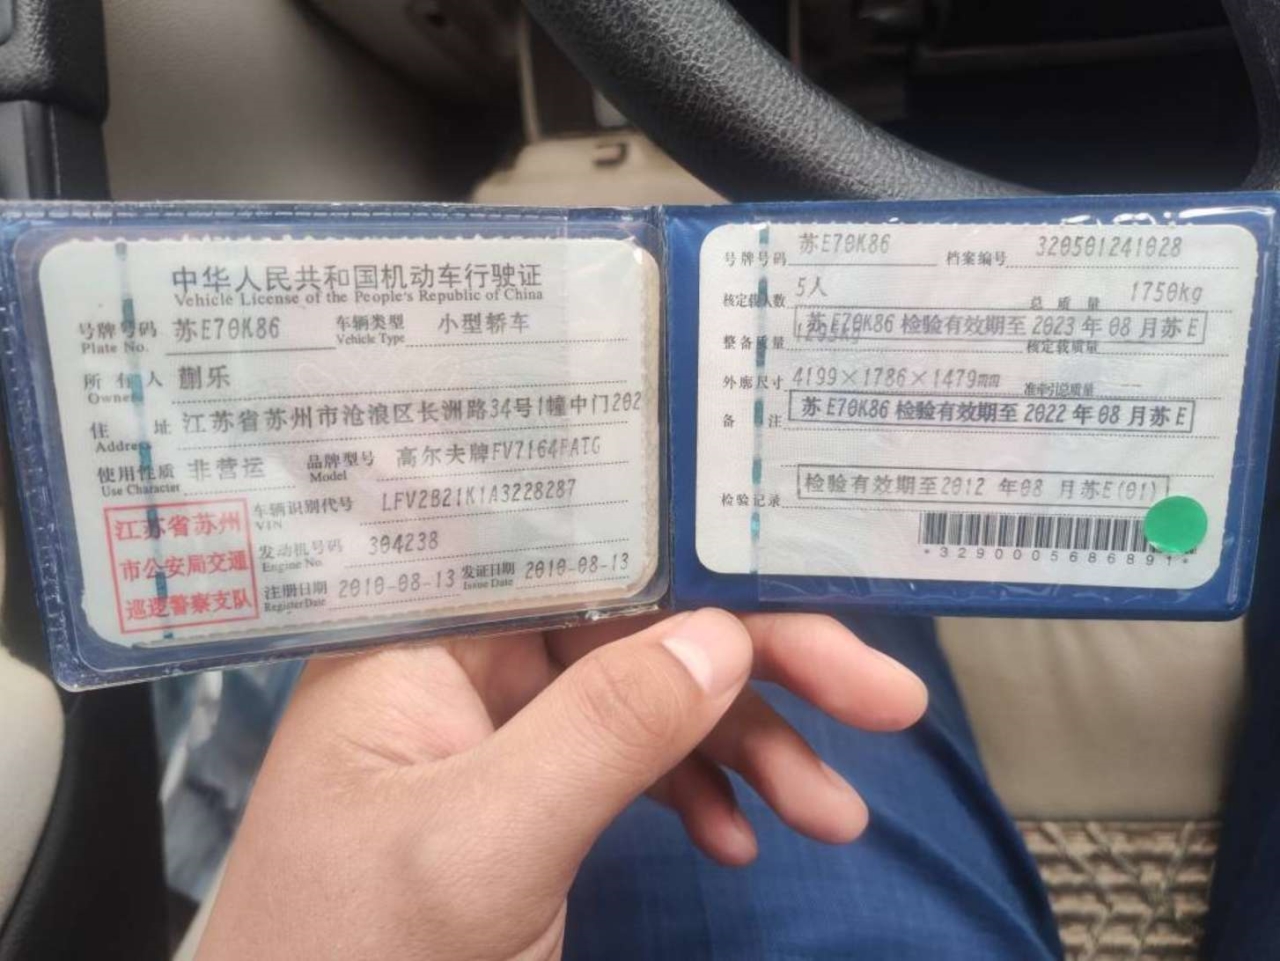 中华人民共和国机动车行驶证
Vehicle License of the People's Republic of China
号牌号码 苏E70K86 车辆类型 小型轿车
Plate No. Vehicle Type
所有人 蒯乐
Owner
住址 江苏省苏州市沧浪区长洲路34号1幢中门202
Address
使用性质 非营运 品牌型号 高尔夫牌FV7164FATG
Use Character Model
江苏省苏州
市公安局交通
巡逻警察支队
车辆识别代号 LFV2B21K1A3228287
VIN
发动机号码 304238
Engine No.
注册日期 2010-08-13 发证日期 2010-08-13
Register Date Issue Date
号牌号码 苏E70K86 档案编号 320501241028
核定载人数 5人 总质量 1750kg
苏E70K86 检验有效期至 2023 年 08 月苏E
整备质量 1293kg 核定载质量
外廓尺寸 4199×1786×1479mm 准牵引总质量 --
备注 苏E70K86 检验有效期至 2022 年 08 月苏E
检验记录 检验有效期至2012 年08 月苏E(01)
*3290005686891*